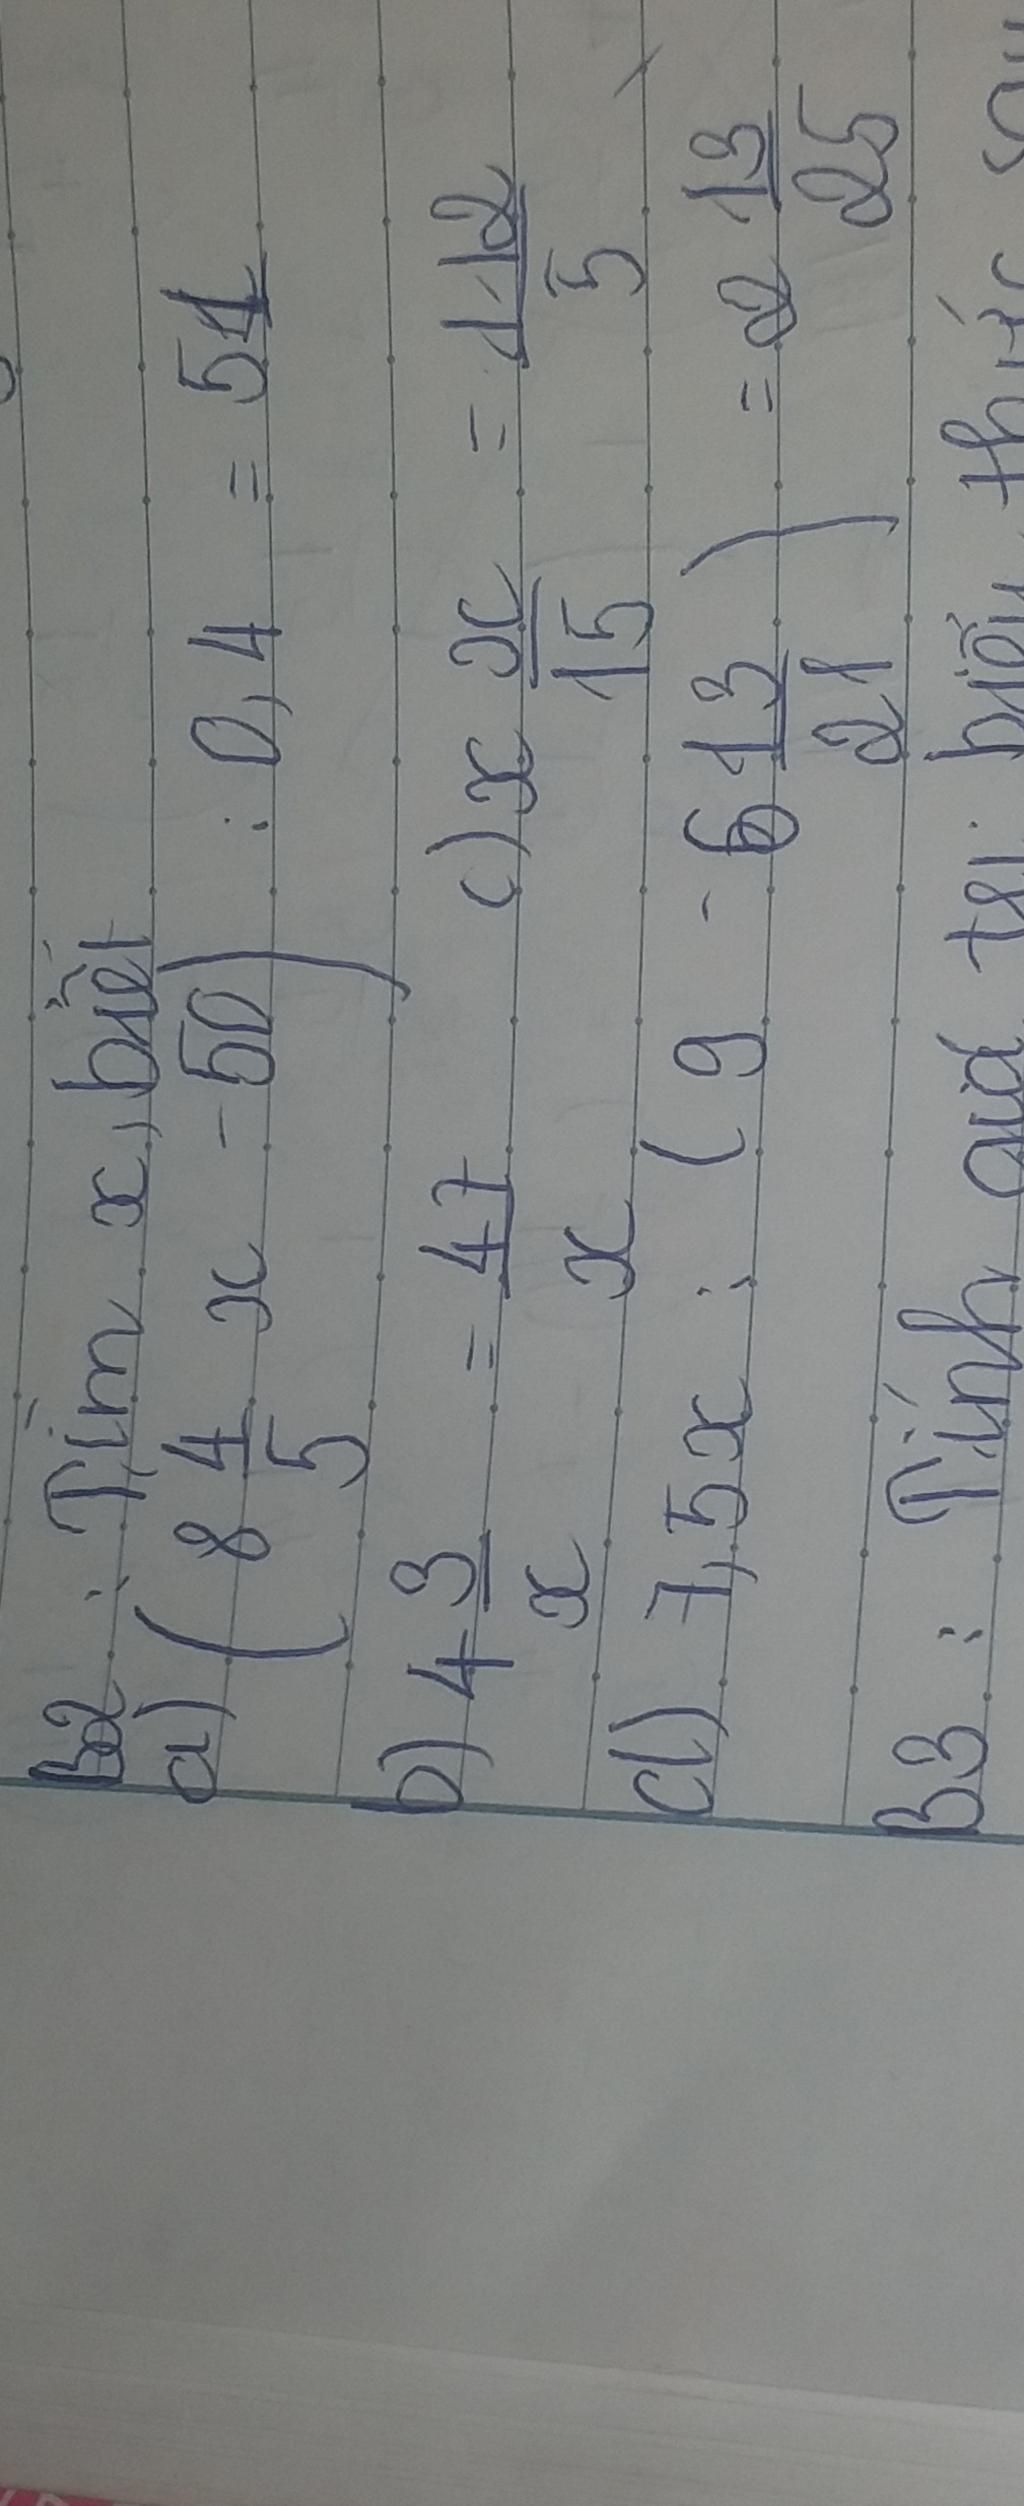 B2 : Tìm x, biết
a) ( 8 4/5 x - 50 ) : 0,4 = 51
b) 4 3/x = 47/x c) x x/15 = 112/5
d) 7,5x : ( 9 - 6 13/21 ) = 2 13/25
B3 : Tính giá trị biểu thức sau